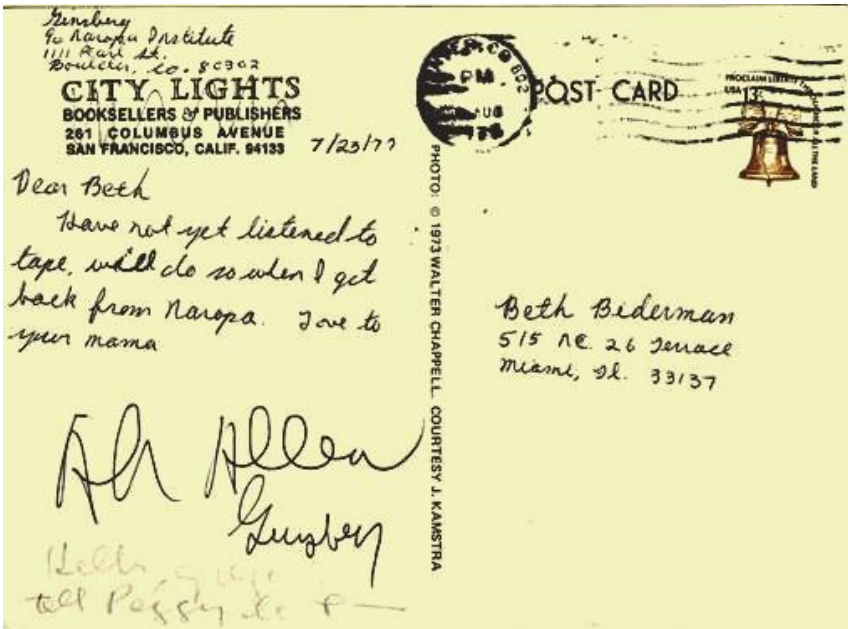 Ginsberg
c/o Naropa Institute
1111 Pearl St.
Boulder, Co. 80302
CITY LIGHTS
BOOKSELLERS & PUBLISHERS
261 COLUMBUS AVENUE
SAN FRANCISCO, CALIF. 94133
7/23/77
Dear Beth
Have not yet listened to
tape, will do so when I get
back from Naropa. Love to
your mama
Ah Allen
Ginsberg
tell Peggy
PHOTO: © 1973 WALTER CHAPPELL. COURTESY J. KAMSTRA
CO 802
PM
AUG
POST CARD
PROCLAIM LIBERTY THROUGHOUT ALL THE LAND
USA 13c
Beth Biderman
515 NE. 26 Terrace
Miami, Fl. 33137